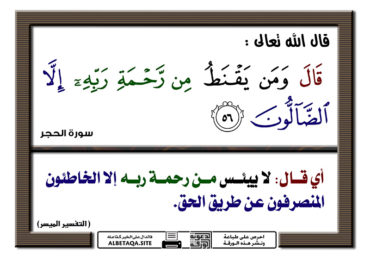 قال الله تعالى :
قَالَ وَمَن يَقْنَطُ مِن رَّحْمَةِ رَبِّهِۦٓ إِلَّا
ٱلضَّآلُّونَ ﴿٥٦﴾
سورة الحجر
أي قــال: لا ييئـس مــن رحمــة ربــه إلا الخاطئون
المنصرفون عن طريق الحق.
(التفسير الميسر)
احرص على طباعة
ونشر هذه الورقة
فالدال على الخير كفاعله
ALBETAQA.SITE